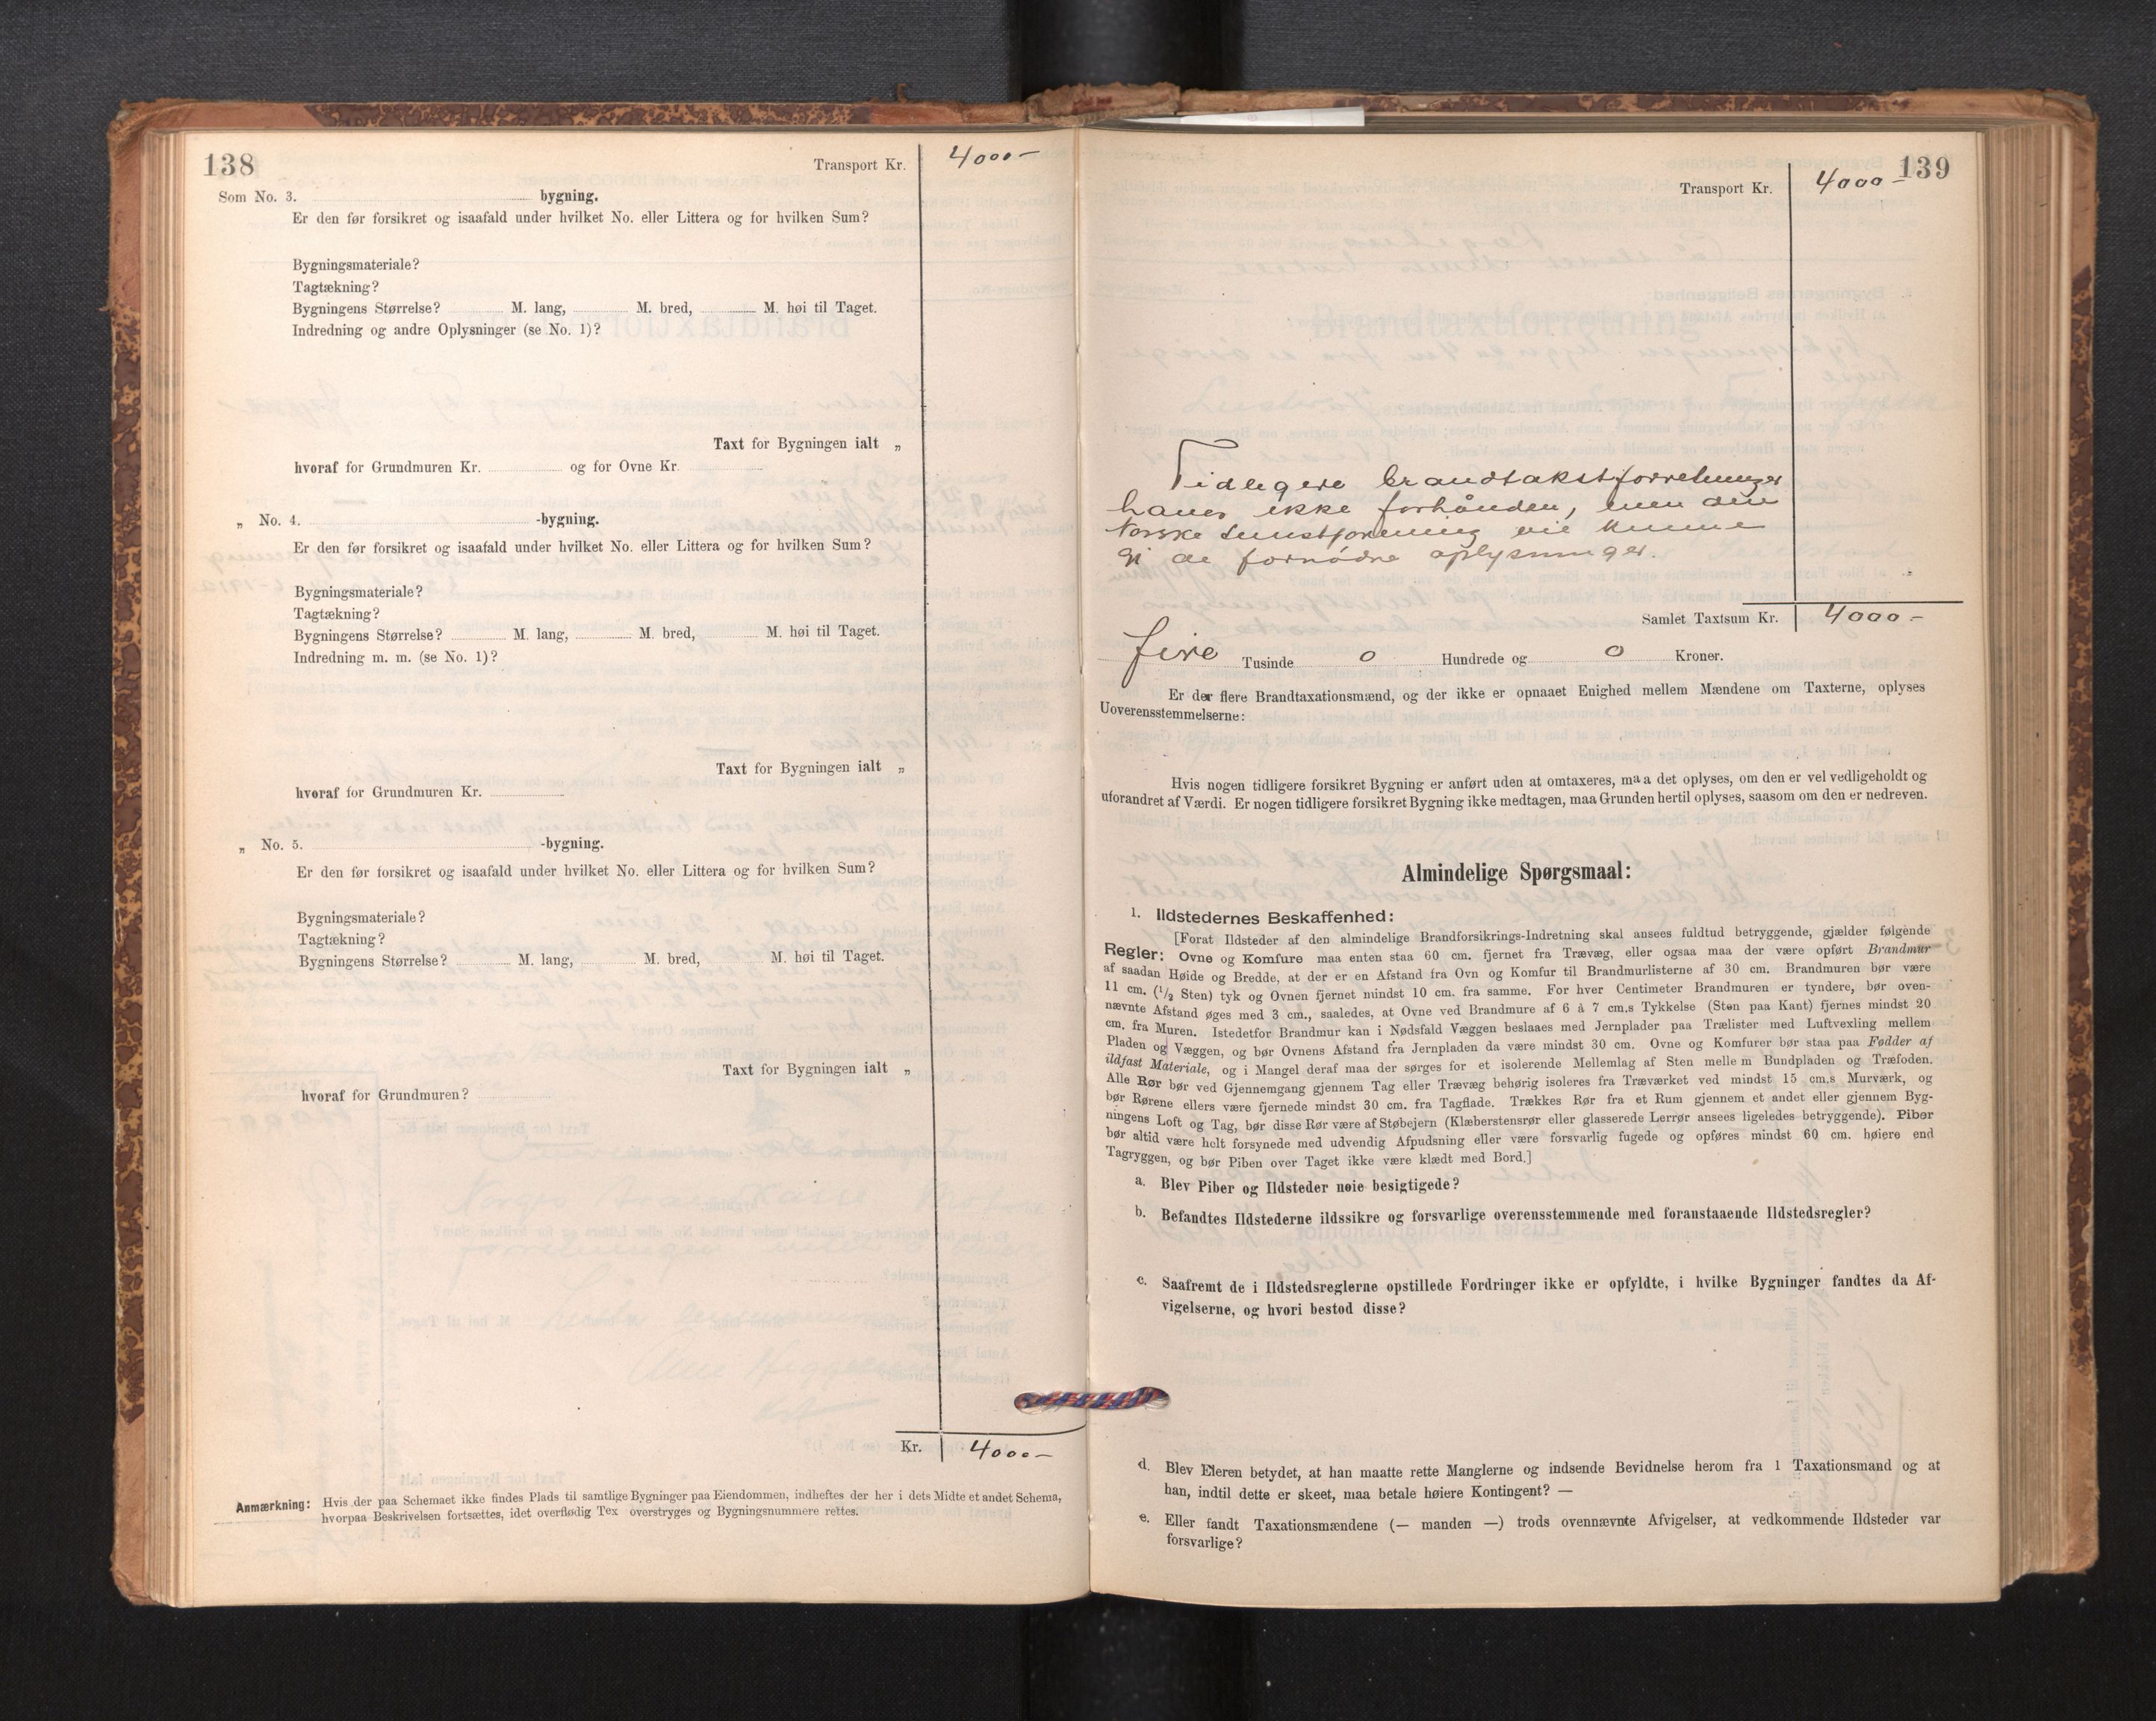 138
Transport Kr. 4000-
Som No. 3. bygning.
Er den før forsikret og isaafald under hvilket No. eller Littera og for hvilken Sum?
Bygningsmateriale?
Tagtækning?
Bygningens Størrelse? M. lang, M. bred, M. høi til Taget.
Indredning og andre Oplysninger (se No. 1)?
Taxt for Bygningen ialt „
hvoraf for Grundmuren Kr. og for Ovne Kr.
„ No. 4. -bygning.
Er den før forsikret og isaafald under hvilket No. eller Littera og for hvilken Sum?
Bygningsmateriale?
Tagtækning?
Bygningens Størrelse? M. lang, M. bred, M. høi til Taget.
Indredning m. m. (se No. 1)?
Taxt for Bygningen ialt „
hvoraf for Grundmuren Kr.
„ No. 5. -bygning.
Er den før forsikret og isaafald under hvilket No. eller Littera og for hvilken Sum?
Bygningsmateriale?
Tagtækning?
Bygningens Størrelse? M. lang, M. bred, M. høi til Taget.
Taxt for Bygningen ialt „
hvoraf for Grundmuren?
Kr. 4000-
Anmærkning: Hvis der paa Schemaet ikke findes Plads til samtlige Bygninger paa Eiendommen, indheftes der her i dets Midte et andet Schema,
hvorpaa Beskrivelsen fortsættes, idet overflødig Tex overstryges og Bygningsnummere rettes.
139
Transport Kr. 4000-
Tidligere brandtakstforretninger
haves ikke forhånden, men den
Norske  vil kunne
gi de fornødne oplysninger.
Samlet Taxtsum Kr. 4000-
fire Tusinde 0 Hundrede og 0 Kroner.
Er der flere Brandtaxationsmænd, og der ikke er opnaaet Enighed mellem Mændene om Taxterne, oplyses
Uoverensstemmelserne:
Hvis nogen tidligere forsikret Bygning er anført uden at omtaxeres, maa det oplyses, om den er vel vedligeholdt og
uforandret af Værdi. Er nogen tidligere forsikret Bygning ikke medtagen, maa Grunden hertil oplyses, saasom om den er nedreven.
Almindelige Spørgsmaal:
1. Ildstedernes Beskaffenhed:
[Forat Ildsteder af den almindelige Brandforsikrings-Indretning skal ansees fuldtud betryggende, gjælder følgende
Regler: Ovne og Komfure maa enten staa 60 cm. fjernet fra Trævæg, eller ogsaa maa der være opført Brandmur
af saadan Høide og Bredde, at der er en Afstand fra Ovn og Komfur til Brandmurlisterne af 30 cm. Brandmuren bør være
11 cm. (1/2 Sten) tyk og Ovnen fjernet mindst 10 cm. fra samme. For hver Centimeter Brandmuren er tyndere, bør oven-
nævnte Afstand øges med 3 cm., saaledes, at Ovne ved Brandmure af 6 à 7 cm.s Tykkelse (Sten paa Kant) fjernes mindst 20
cm. fra Muren. Istedetfor Brandmur kan i Nødsfald Væggen beslaaes med Jernplader paa Trælister med Luftvexling mellem
Pladen og Væggen, og bør Ovnens Afstand fra Jernpladen da være mindst 30 cm. Ovne og Komfurer bør staa paa Fødder af
ildfast Materiale, og i Mangel deraf maa der sørges for et isolerende Mellemlag af Sten mellem Bundpladen og Træfoden.
Alle Rør bør ved Gjennemgang gjennem Tag eller Trævæg behørig isoleres fra Træværket ved mindst 15 cm.s Murværk, og
bør Rørene ellers være fjernede mindst 30 cm. fra Tagflade. Trækkes Rør fra et Rum gjennem et andet eller gjennem Byg-
ningens Loft og Tag, bør disse Rør være af Støbejern (Klæberstensrør eller glasserede Lerrør ansees ligeledes betryggende). Piber
bør altid være helt forsynede med udvendig Afpudsning eller være forsvarlig fugede og opføres mindst 60 cm. høiere end
Tagryggen, og bør Piben over Taget ikke være klædt med Bord.]
a. Blev Piber og Ildsteder nøie besigtigede?
b. Befandtes Ildstederne ildssikre og forsvarlige overensstemmende med foranstaaende Ildstedsregler?
c. Saafremt de i Ildstedsreglerne opstillede Fordringer ikke er opfyldte, i hvilke Bygninger fandtes da Af-
vigelserne, og hvori bestod disse?
d. Blev Eieren betydet, at han maatte rette Manglerne og indsende Bevidnelse herom fra 1 Taxationsmand og at
han, indtil dette er skeet, maa betale høiere Kontingent? —
e. Eller fandt Taxationsmændene (— manden —) trods ovennævnte Afvigelser, at vedkommende Ildsteder var
forsvarlige?